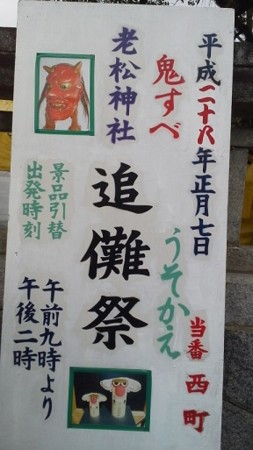 平成二十八年正月七日
鬼すべ
うそかえ
当番 西町
老松神社
追儺祭
景品引替
出発時刻
午前九時より
午後二時